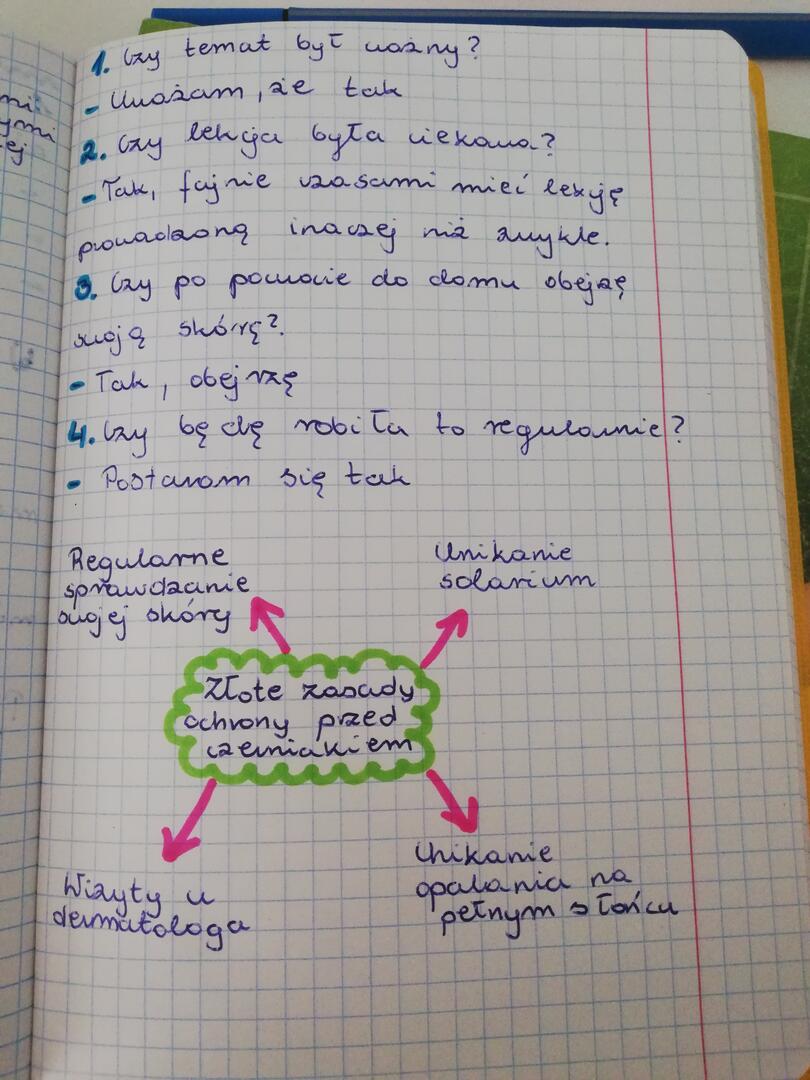 mi
ymi
ej
1. Czy temat był ważny?
- Uważam, że tak
2. Czy lekcja była ciekawa?
- Tak, fajnie czasami mieć lekcję
prowadzoną inaczej niż zwykle.
3. Czy po powrocie do domu obejżę
swoją skórę?
- Tak, obejrzę
4. Czy będę robiła to regularnie?
- Postaram się tak
Regularne
sprawdzanie
swojej skóry
Unikanie
solarium
Złote zasady
ochrony przed
czerniakiem
Wizyty u
dermatologa
Unikanie
opalania na
pełnym słońcu